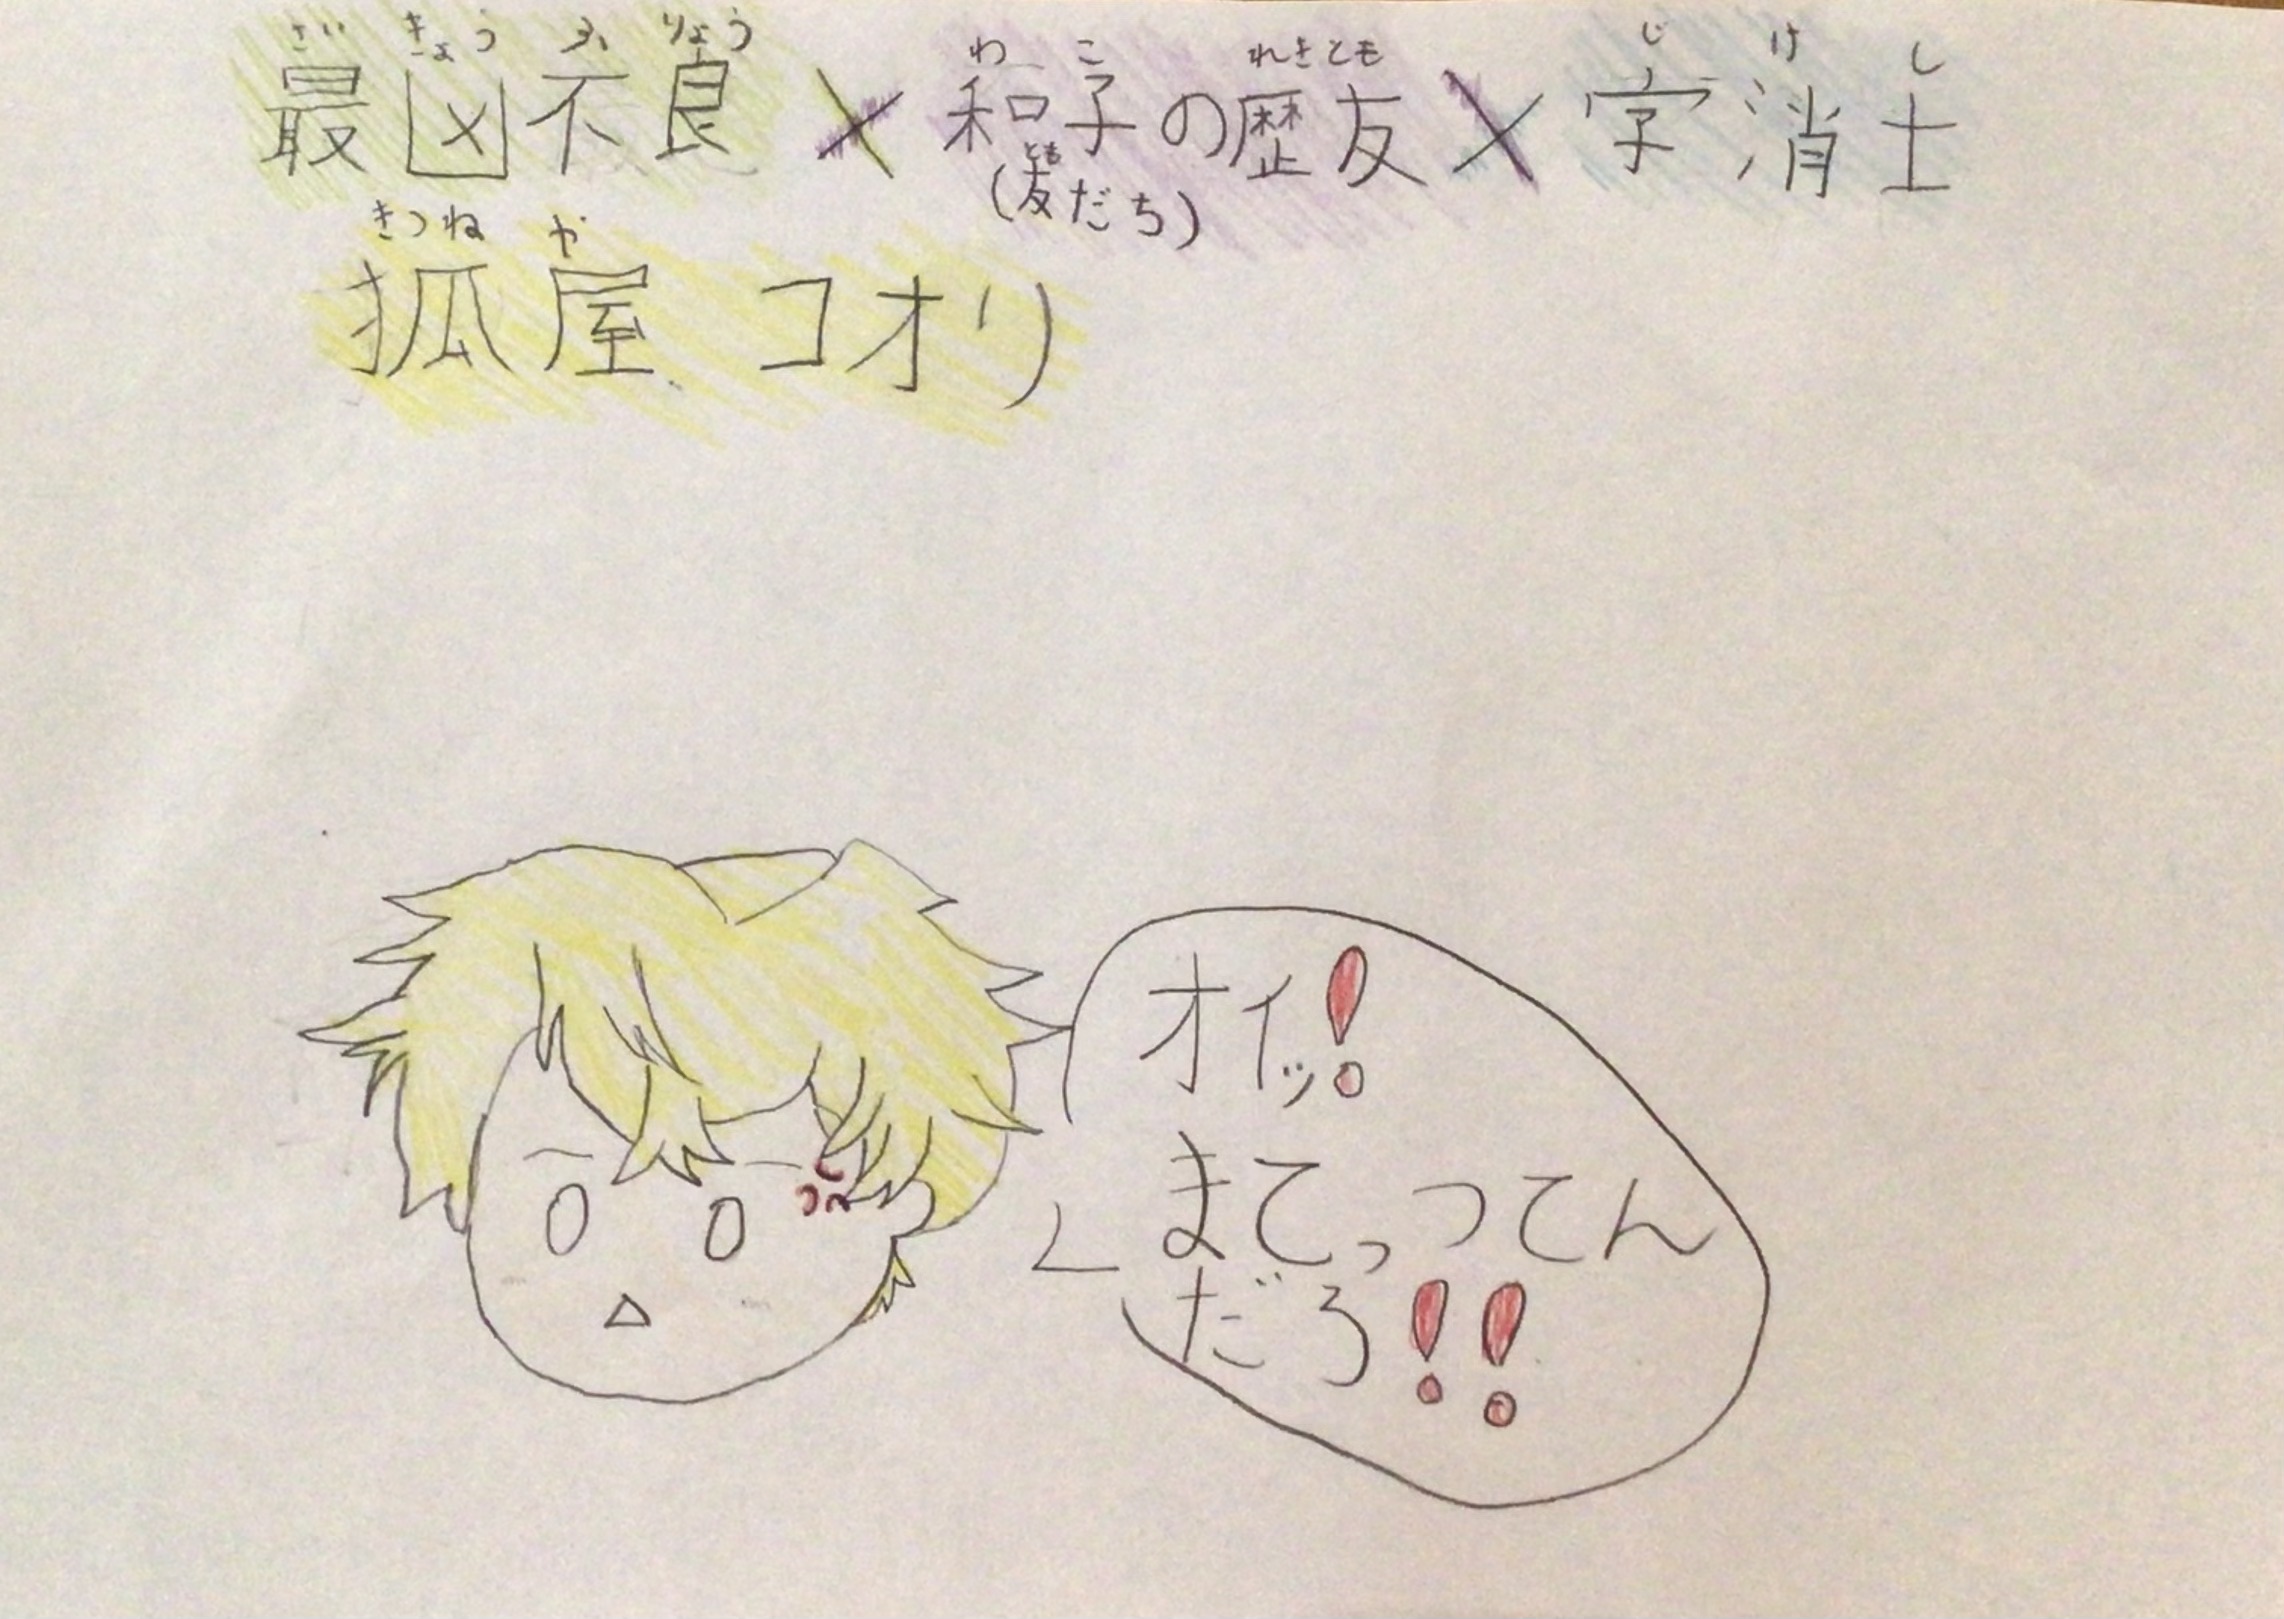 さい きょう ふ りょう わ こ れきとも じ け し
最凶不良×和子の歴友×字消士
とも
(友だち)
きつね や
狐屋 コオリ
オイッ!
まてっってん
だろ!!